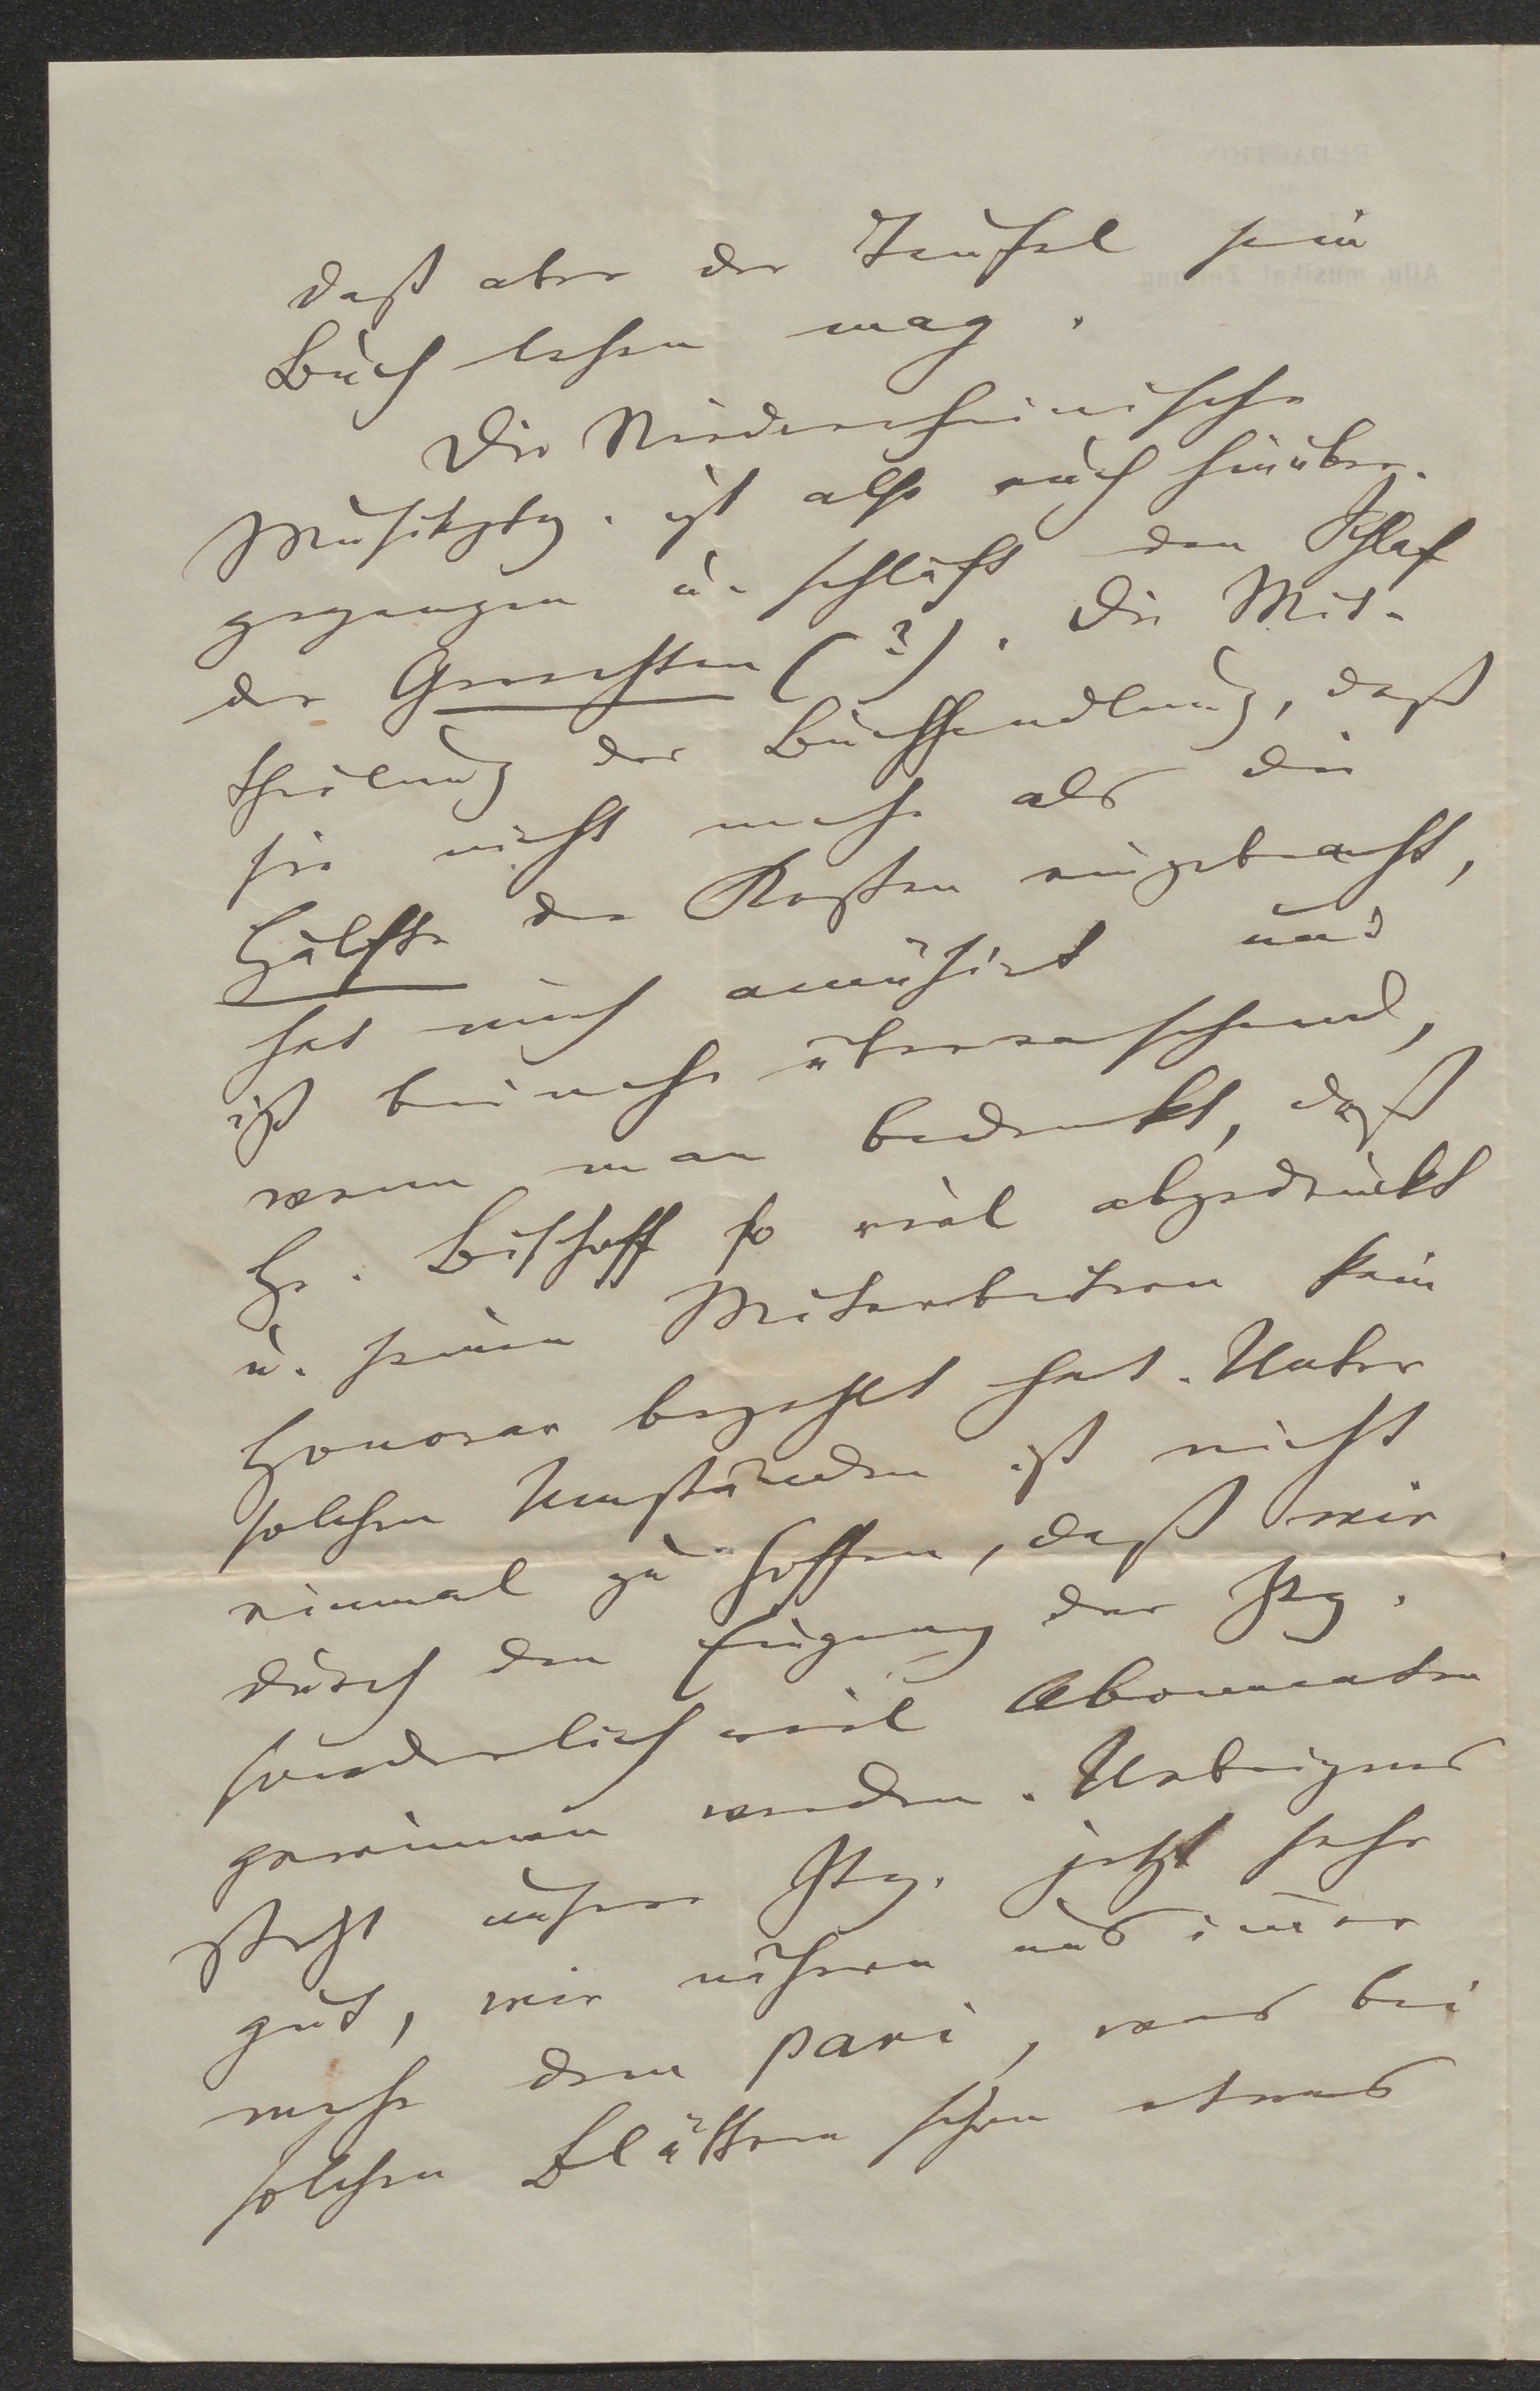 daß aber der Teufel sein
Buch lesen mag.
Die Niederrheinische
Musikztg. ist also auch hinüber-
gegangen u. schläft den Schlaf
der Gerechten (?). Die Mit-
theilung der Buchhandlung, daß
sie nicht mehr als die
Hälfte der Kosten eingebracht,
hat mich amüsirt und
ist beinahe überraschend,
wenn man bedenkt, daß
Hr. Bischoff so viel abgedruckt
u. seinen Mitarbeitern kein
Honorar bezahlt hat. Unter
solchen Umständen ist nicht
einmal zu hoffen, daß wir
durch den Eingang der Ztg.
sonderlich viel Abonnenten
gewinnen werden. Uebrigens
steht unsere Ztg. jetzt sehr
gut, wir nähern uns im̅er
mehr dem pari, was bei
solchen Blättern schon etwas